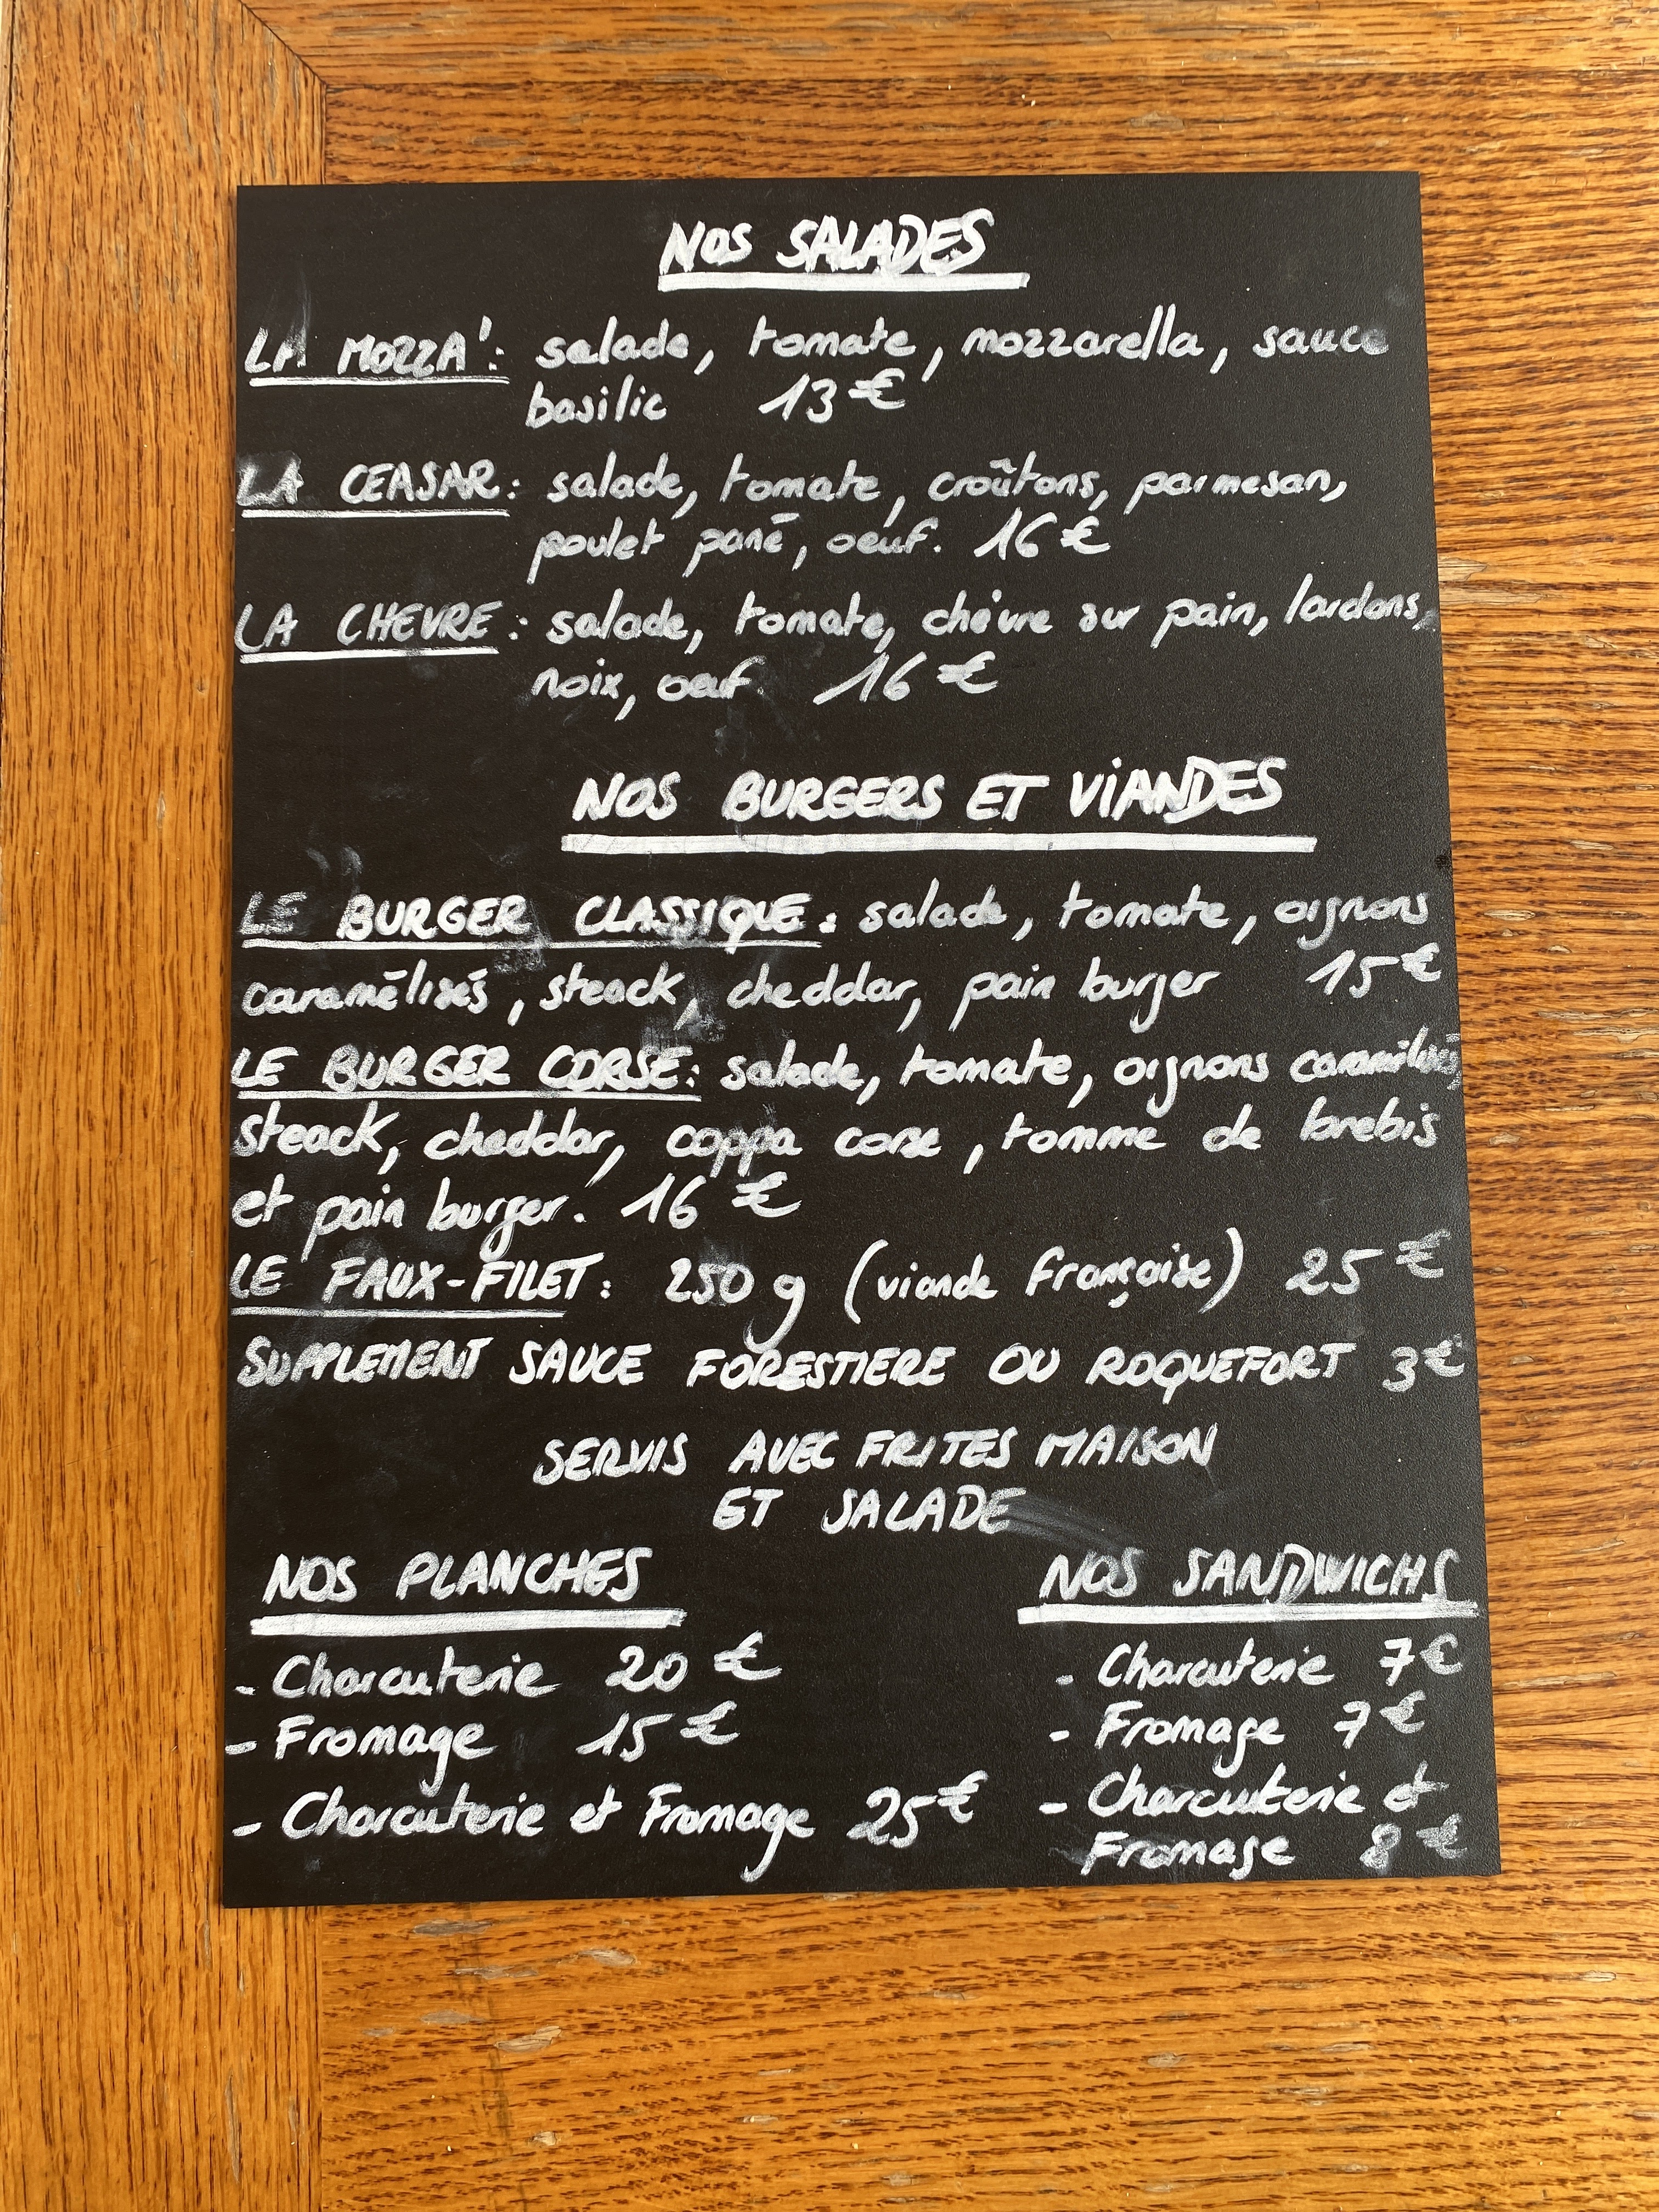 NOS SALADES
LA MOZZA': salade, tomate, mozzarella, sauce
basilic 13€
LA CEASAR: salade, tomate, croûtons, parmesan,
poulet pané, oeuf. 16€
LA CHEVRE: salade, tomate, chèvre sur pain, lardons,
noix, oeuf. 16€
NOS BURGERS ET VIANDES
LE BURGER CLASSIQUE: salade, tomate, oignons
caramélisés, steack, cheddar, pain burger 15€
LE BURGER CORSE: salade, tomate, oignons caramélisés,
steack, cheddar, coppa corse, tomme de brebis
et pain burger. 16€
LE FAUX-FILET: 250g (viande française) 25€
SUPPLEMENT SAUCE FORESTIERE OU ROQUEFORT 3€
SERVIS AVEC FRITES MAISON
ET SALADE
NOS PLANCHES
- Charcuterie 20€
- Fromage 15€
- Charcuterie et Fromage 25€
NOS SANDWICHS
- Charcuterie 7€
- Fromage 7€
- Charcuterie et
Fromage 8€